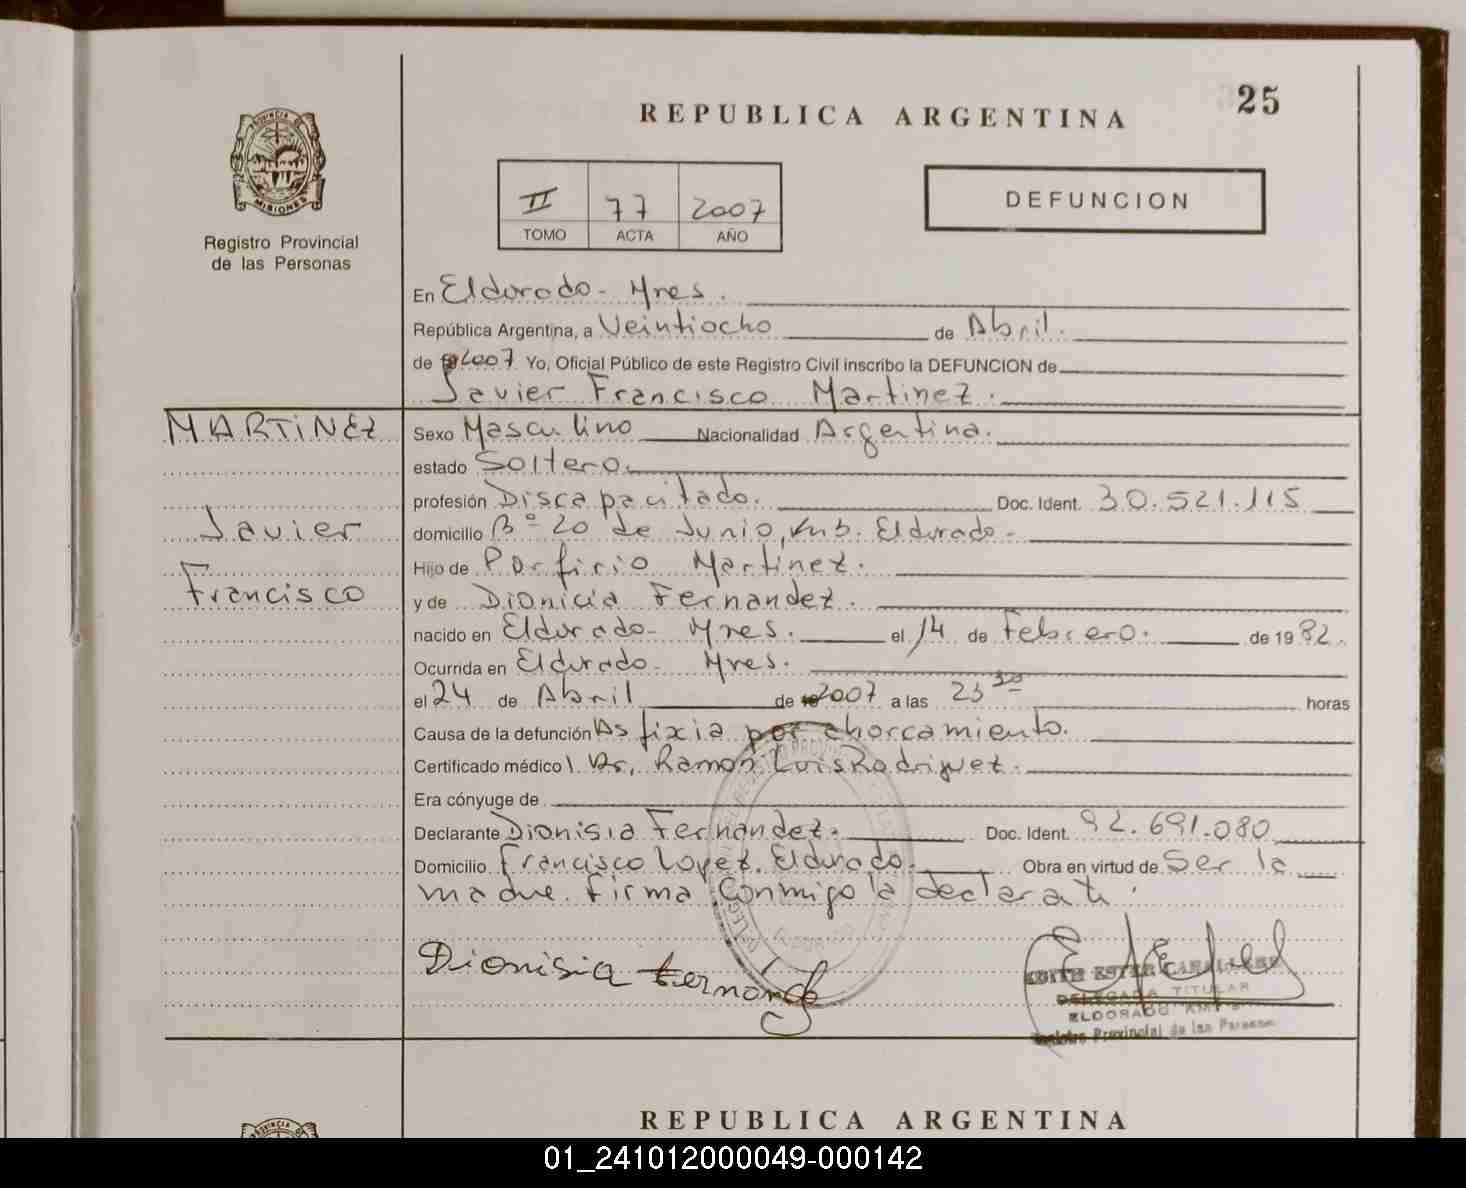 25
REPUBLICA ARGENTINA
PROVINCIA DE
MISIONES
Registro Provincial
de las Personas
II 77 2007
TOMO ACTA AÑO
DEFUNCION
En Eldorado - Mnes.
República Argentina, a Veintiocho de Abril.
de 2007 Yo, Oficial Público de este Registro Civil inscribo la DEFUNCION de
Javier Francisco Martinez.
MARTINEZ
Javier
Francisco
Sexo Masculino Nacionalidad Argentina.
estado Soltero.
profesión Discapacitado. Doc. Ident. 30.521.115
domicilio Bº 20 de Junio, Eldorado-
Hijo de Porfirio Martinez.
y de Dionicia Fernandez.
nacido en Eldorado- Mnes. el 14 de Febrero. de 1982.
Ocurrida en Eldorado- Mnes.
el 24 de Abril de 2007 a las 23 30 horas
Causa de la defunción Asfixia por ahorcamiento.
Certificado médico Dr. Ramon Luis Rodriguez.
Era cónyuge de
Declarante Dionisia Fernandez. Doc. Ident. 92.691.080
Domicilio Francisco Lopez. Eldorado. Obra en virtud de Ser la
madre. Firma Conmigo la declarante
Dionisia Fernández
EDITH ESTER
DELEGADA TITULAR
ELDORADO
Registro Provincial de las Personas
REPUBLICA ARGENTINA
01_241012000049-000142